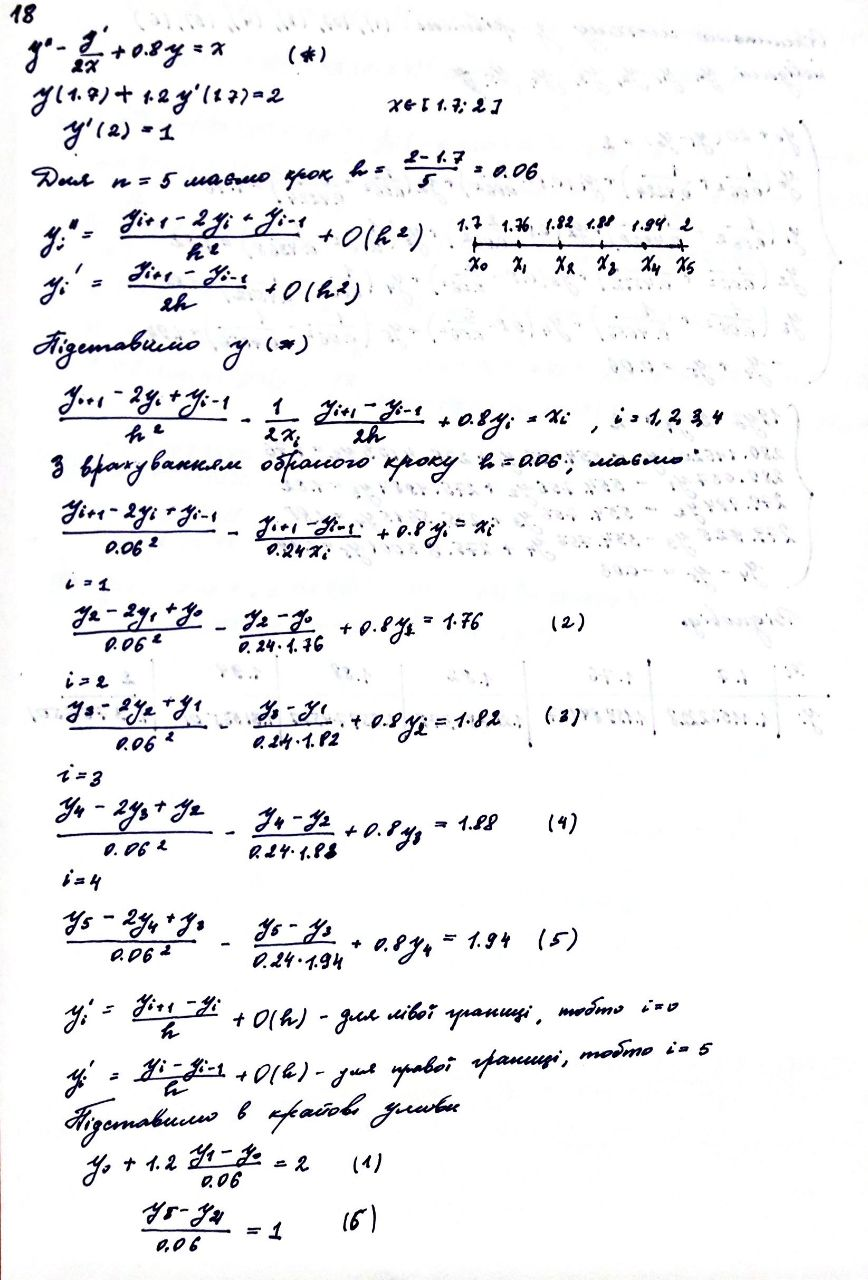 18
y'' - y'/2x + 0.8y = x (*)
y(1.7) + 1.2y'(1.7) = 2 x ∈ [1.7; 2]
y'(2) = 1
Для n = 5 маємо крок h = (2 - 1.7)/5 = 0.06
y_i'' = (y_{i+1} - 2y_i + y_{i-1})/h² + O(h²) 1.7 1.76 1.82 1.88 1.94 2
y_i' = (y_{i+1} - y_{i-1})/2h + O(h²) x₀ x₁ x₂ x₃ x₄ x₅
Підставимо у (*)
(y_{i+1} - 2y_i + y_{i-1})/h² - 1/2x_i (y_{i+1} - y_{i-1})/2h + 0.8y_i = x_i , i = 1, 2, 3, 4
З врахуванням обраного кроку h = 0.06, маємо:
(y_{i+1} - 2y_i + y_{i-1})/0.06² - (y_{i+1} - y_{i-1})/0.24x_i + 0.8y_i = x_i
i = 1
(y₂ - 2y₁ + y₀)/0.06² - (y₂ - y₀)/0.24·1.76 + 0.8y₁ = 1.76 (2)
i = 2
(y₃ - 2y₂ + y₁)/0.06² - (y₃ - y₁)/0.24·1.82 + 0.8y₂ = 1.82 (3)
i = 3
(y₄ - 2y₃ + y₂)/0.06² - (y₄ - y₂)/0.24·1.88 + 0.8y₃ = 1.88 (4)
i = 4
(y₅ - 2y₄ + y₃)/0.06² - (y₅ - y₃)/0.24·1.94 + 0.8y₄ = 1.94 (5)
y_i' = (y_{i+1} - y_i)/h + O(h) - для лівої границі, тобто i = 0
y_i' = (y_i - y_{i-1})/h + O(h) - для правої границі, тобто i = 5
Підставимо в крайові умови
y₀ + 1.2 (y₁ - y₀)/0.06 = 2 (1)
(y₅ - y₄)/0.06 = 1 (6)